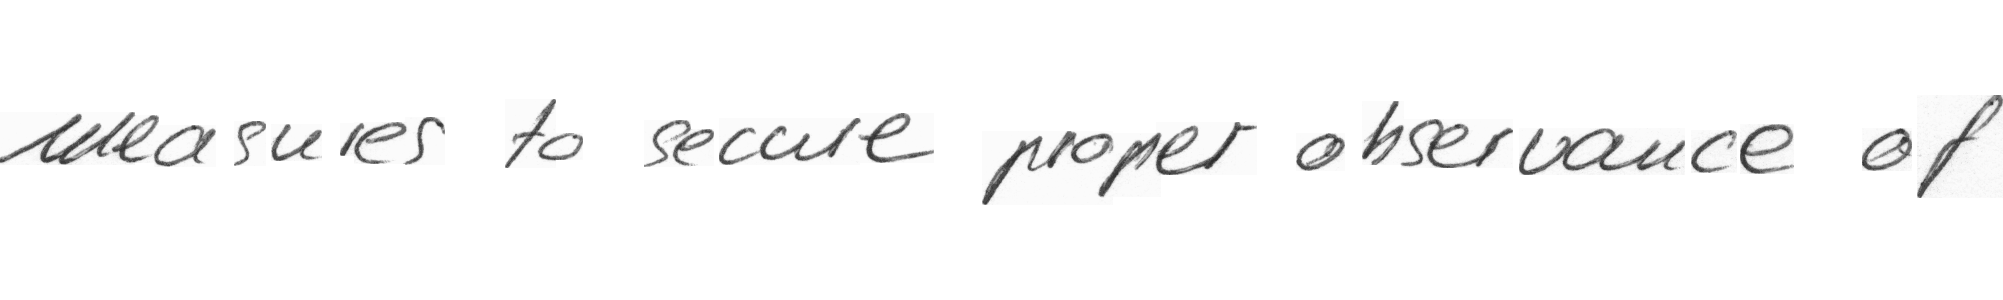 measures to secure proper observance of